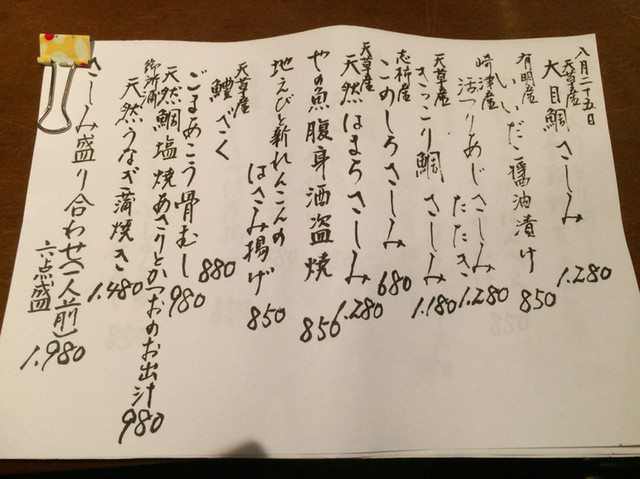 八月二十五日
天草産
大目鯛さしみ 1.280
有明産
いいだこ醤油漬け 850
崎津産
活つりあじ さしみ たたき 1.280
天草産
きっこり鯛 さしみ 1.180
志柿産
このしろさしみ 680
天草産
天然はまちさしみ 1.280
やの魚腹身酒盗焼 850
地えびと新れんこんの
はさみ揚げ 850
天草産
鱧ざく 880
ごまあこう骨むし 980
天然鯛塩焼あさりとかつおのお出汁 980
御所浦
天然うなぎ蒲焼き 1.480
さしみ盛り合わせ(一人前)
六点盛 1.980